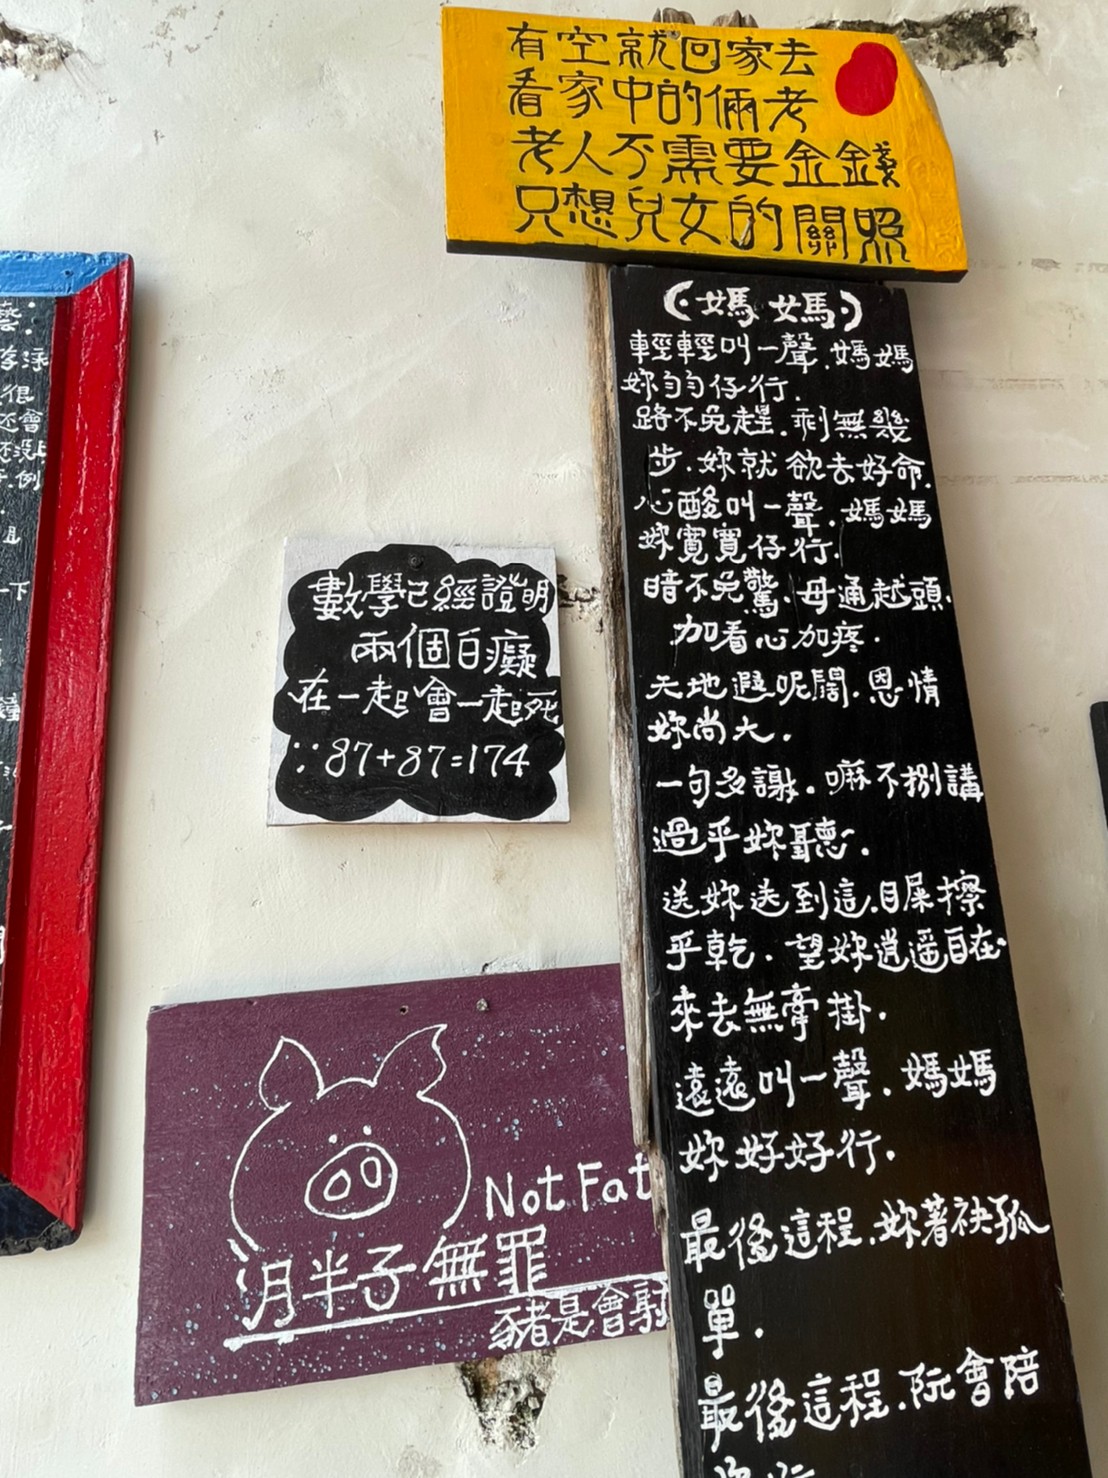 有空就回家去
看家中的倆老
老人不需要金錢
只想兒女的關照
(·媽媽·)
輕輕叫一聲.媽媽
妳勻勻仔行.
路不免趕.剩無幾
步.妳就欲去好命.
心酸叫一聲.媽媽
妳寬寬仔行.
暗不免驚.毋通越頭.
加看心加疼.
天地遐呢闊.恩情
妳尚大.
一句多謝.嘛不捌講
過乎妳聽.
送妳送到這.目屎擦
乎乾.望妳逍遥自在.
來去無罣掛.
遠遠叫一聲.媽媽
妳好好行.
最後這程.妳著袂孤
單.
最後這程.阮會陪
數學已經證明
兩個白癡
在一起會一起死
∵87+87=174
Not Fat
月半子無罪
豬是會